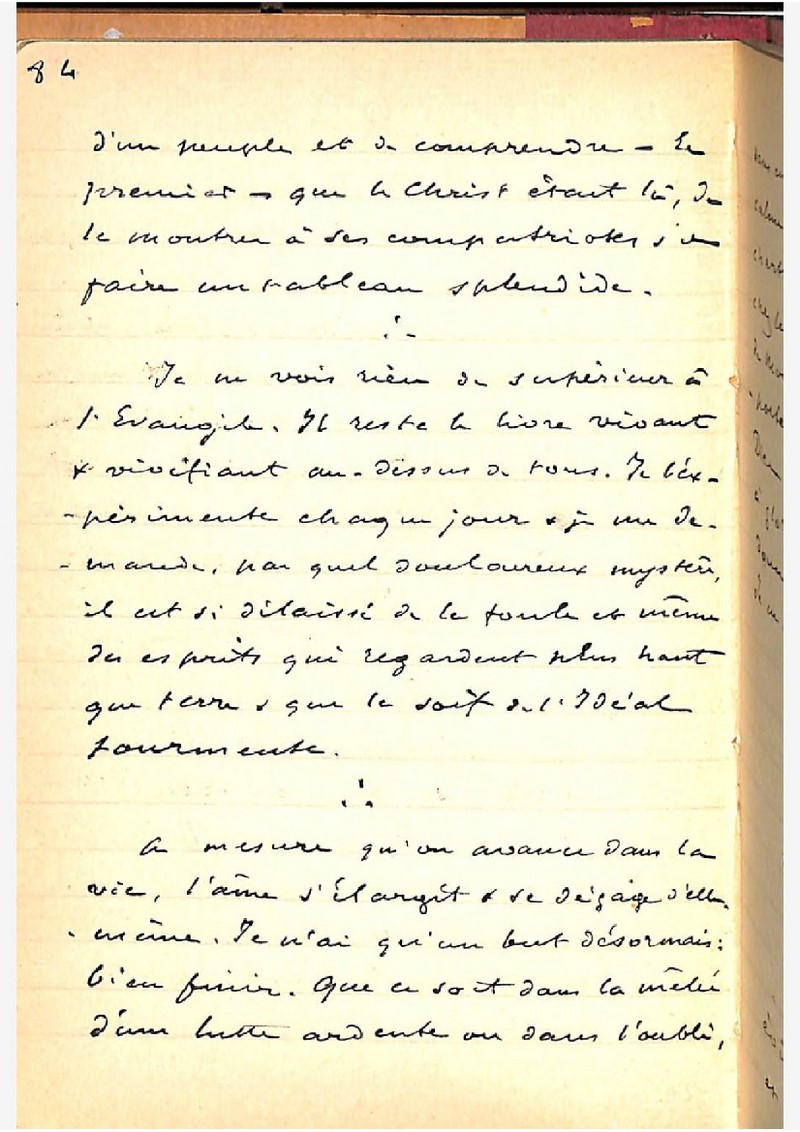 84
d'un peuple et de comprendre – le
premier – que le Christ était là, de
le montrer à ses compatriotes & en
faire un tableau splendide.
∴
Je ne vois rien de supérieur à
l'Evangile. Il reste le livre vivant
& vivifiant au-dessus de tous. Je l'ex-
-périmente chaque jour & je me de-
-mande, par quel douloureux mystère,
il est si délaissé de la foule et même
des esprits qui regardent plus haut
que terre & que la soif de l'Idéal
tourmente.
∴
A mesure qu'on avance dans la
vie, l'âme s'élargit & se dégage d'elle-
-même. Je n'ai qu'un but désormais:
bien finir. Que ce soit dans la mêlée
d'une lutte ardente ou dans l'oubli,